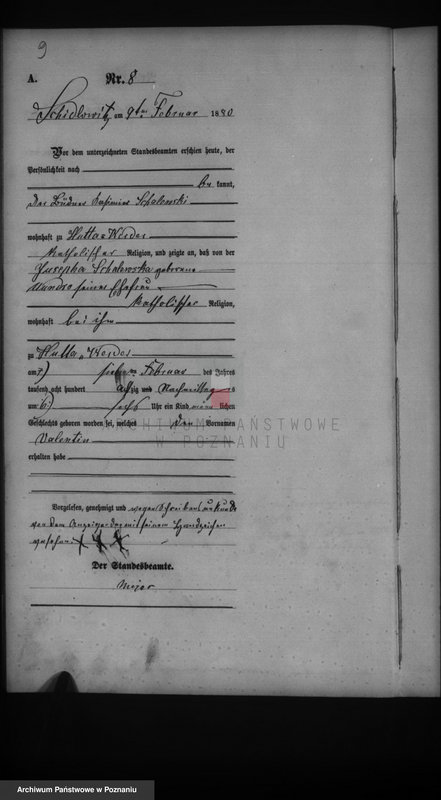 9
A. Nr. 8
Schidlowitz am 9ten Februar 1880
Vor dem unterzeichneten Standesbeamten erschien heute, der
Persönlichkeit nach
be kannt,
der Büdner Casimir Schalewski
wohnhaft zu Hutta-Werder
katholischer Religion, und zeigte an, daß von der
Josepha Schalewska geborene
seiner Ehefrau
katholischer Religion,
wohnhaft bei ihm
zu Hutta-Werder
am 7) sieben Februar des Jahres
tausend acht hundert achtzig und Nachmittags
um 6) sechs Uhr ein Kind männ lichen
Geschlechts geboren worden sei, welches den Vornamen
Valentin
erhalten habe
Vorgelesen, genehmigt und wegen Schreibensunkunde
von dem Anzeigenden mit seinem Handzeichen
versehen. XXX
Der Standesbeamte.
Meyer
ARCHIWUM PAŃSTWOWE
W POZNANIU
Archiwum Państwowe w Poznaniu